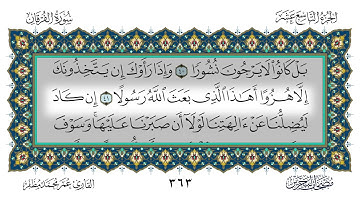 الجزء التاسع عشر
سورة الفرقان
بَلْ كَانُوا۟ لَا يَرْجُونَ نُشُورًا ۝٤٠ وَإِذَا رَأَوْكَ إِن يَتَّخِذُونَكَ
إِلَّا هُزُوًا أَهَٰذَا ٱلَّذِى بَعَثَ ٱللَّهُ رَسُولًا ۝٤١ إِن كَادَ
لَيُضِلُّنَا عَنْ ءَالِهَتِنَا لَوْلَآ أَن صَبَرْنَا عَلَيْهَا ۚ وَسَوْفَ
القارئ عمر محمد مظفر
٣٦٣